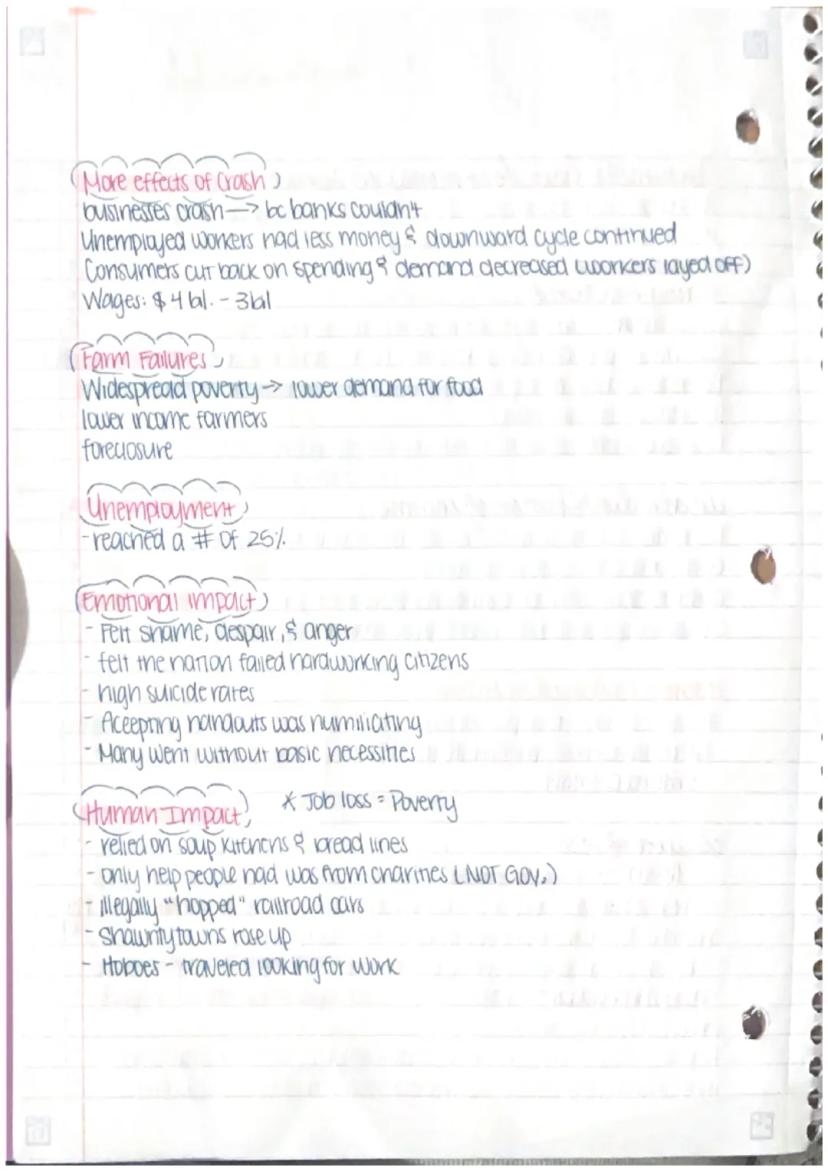 More effects of Crash
businesses crash —> bc banks couldn't
Unemployed workers had less money & downward cycle continued
Consumers cut back on spending & demand decreased (workers layed off)
Wages: $4 bl. - 3bl
Farm Failures
Widespread poverty -> lower demand for food
lower income farmers
foreclosure
Unemployment
- reached a # of 25%
Emotional impact
- Felt shame, despair, & anger
- felt the nation failed hardworking citizens
- high suicide rates
- Accepting handouts was humiliating
- Many went without basic necessities
Human Impact * Job loss = Poverty
- relied on soup kitchens & bread lines
- only help people had was from charities (NOT GOV.)
- illegally "hopped" railroad cars
- shawnty towns rose up
- Hoboes - traveled looking for work